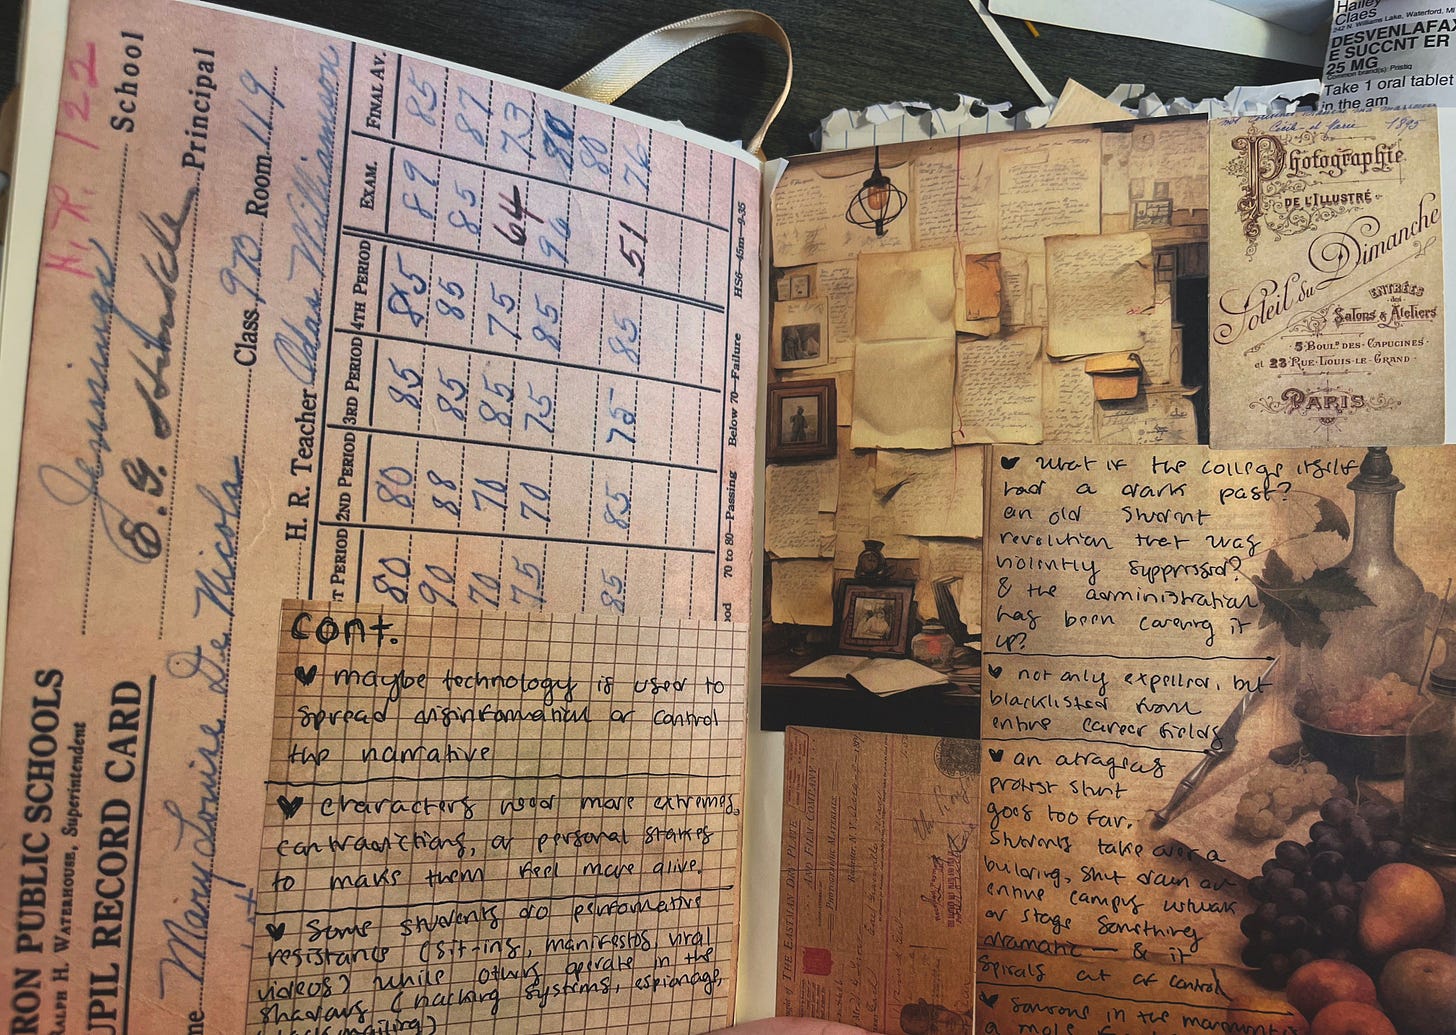 H.R. 122
Jennings School
E. G. Hinkle Principal
Class 9 Room 119
H. R. Teacher Adas Williamson
RON PUBLIC SCHOOLS
RALPH H. WATERHOUSE, Superintendent
UPIL RECORD CARD
me Mary Louise De Nicola
T PERIOD 2ND PERIOD 3RD PERIOD 4TH PERIOD EXAM. FINAL AV.
80 80 85 85 89 85
90 88 85 85 85 87
70 70 85 75 64 73
75 70 75 85 90 80
80
85 85 75 85 51 76
ood 70 to 80—Passing Below 70—Failure HS6—45m—9-35
cont.
♥ maybe technology is used to
spread disinformation or control
the narrative
♥ characters need more extremes,
contradictions, or personal stakes
to make them feel more alive.
♥ Some students do performative
resistance (sit-ins, manifestos, viral
videos) while others operate in the
shadows (hacking systems, espionage,
blackmailing)
Hailey
Claes
242 N. Williams Lake, Waterford, MI
DESVENLAFAX
E SUCCNT ER
25 MG
Common brand(s): Pristiq
Take 1 oral tablet
in the am
1895
Photographie
DE L'ILLUSTRÉ
Soleil du Dimanche
ENTRÉES
des
Salons & Ateliers
5·BOUL.D DES·CAPUCINES·
et 23·RUE·LOUIS·LE·GRAND·
PARIS
♥ what if the college itself
had a dark past?
an old student
revolution that was
violently suppressed?
& the administration
has been covering it
up?
♥ not only expelled, but
blacklisted from
entire career fields
♥ an atragius
protest stunt
goes too far.
Students take over a
building, shut down an
entire campus network
or stage something
dramatic — & it
spirals out of control
♥ Someone in the
a mole
THE EASTMAN DRY PLATE
AND FILM COMPANY
PHOTOGRAPHIC MATERIALS